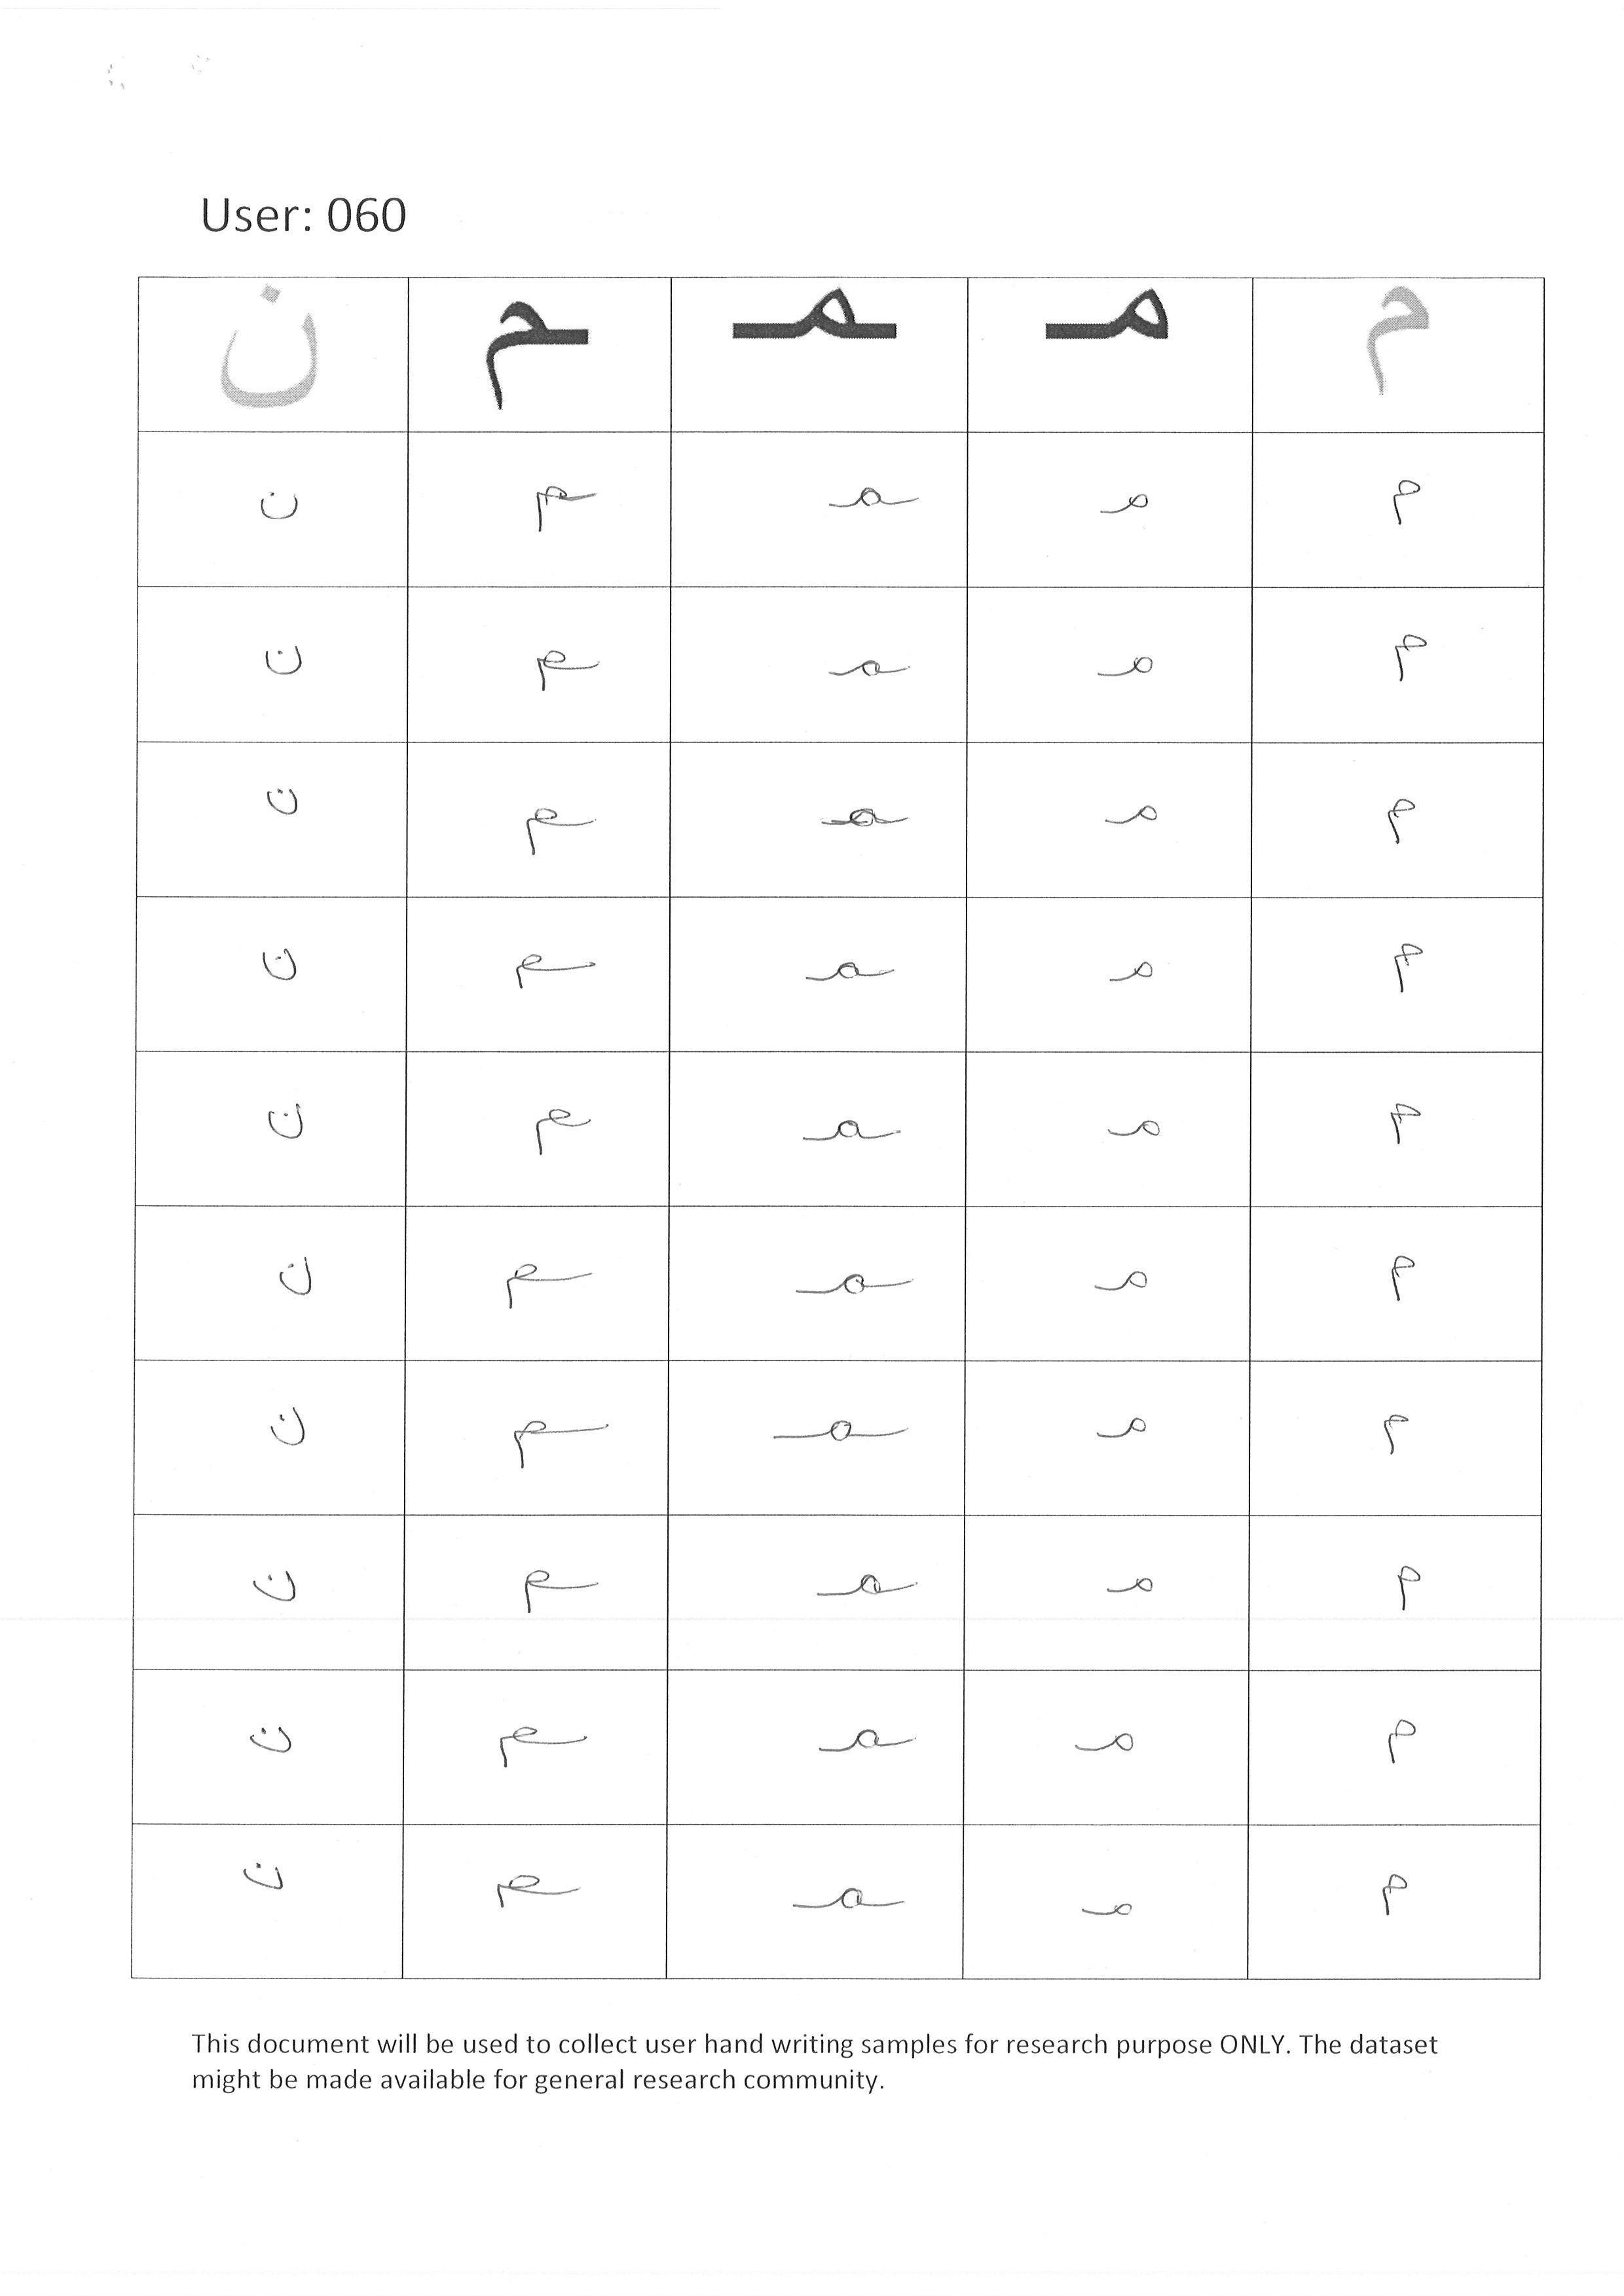 User: 060
م مـ ـمـ ـم ن
م مـ ـمـ ـم ن
م مـ ـمـ ـم ن
م مـ ـمـ ـم ن
م مـ ـمـ ـم ن
م مـ ـمـ ـم ن
م مـ ـمـ ـم ن
م مـ ـمـ ـم ن
م مـ ـمـ ـم ن
م مـ ـمـ ـم ن
م مـ ـمـ ـم ن
This document will be used to collect user hand writing samples for research purpose ONLY. The dataset
might be made available for general research community.